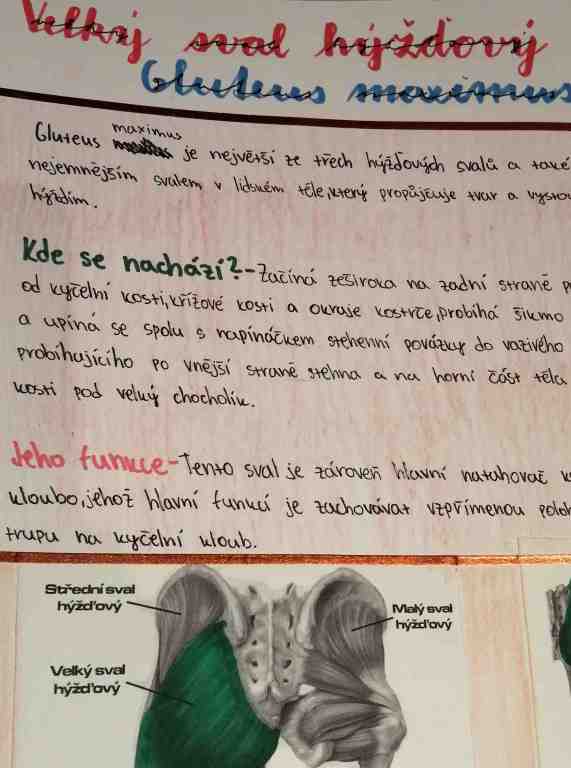 Velký sval hýžďový
Gluteus maximus
maximus
Gluteus je největší ze třech hýžďových svalů a také
nejemnějším svalem v lidském těle, který propůjčuje tvar a
hýždím.
Kde se nachází? - Začíná zeširoka na zadní straně
od kyčelní kosti, křížové kosti a okraje kostrče, probíhá šikmo
a upíná se spolu s napínáčkem stehenní povázky do vazivého
probíhajícího po vnější straně stehna a na horní část těla
kosti pod velký chocholík.
Jeho funkce - Tento sval je zároveň hlavní natahovač
kloubo, jehož hlavní funkcí je zachovávat vzpřímenou
trupu na kyčelní kloub.
Střední sval
hýžďový
Malý sval
hýžďový
Velký sval
hýžďový